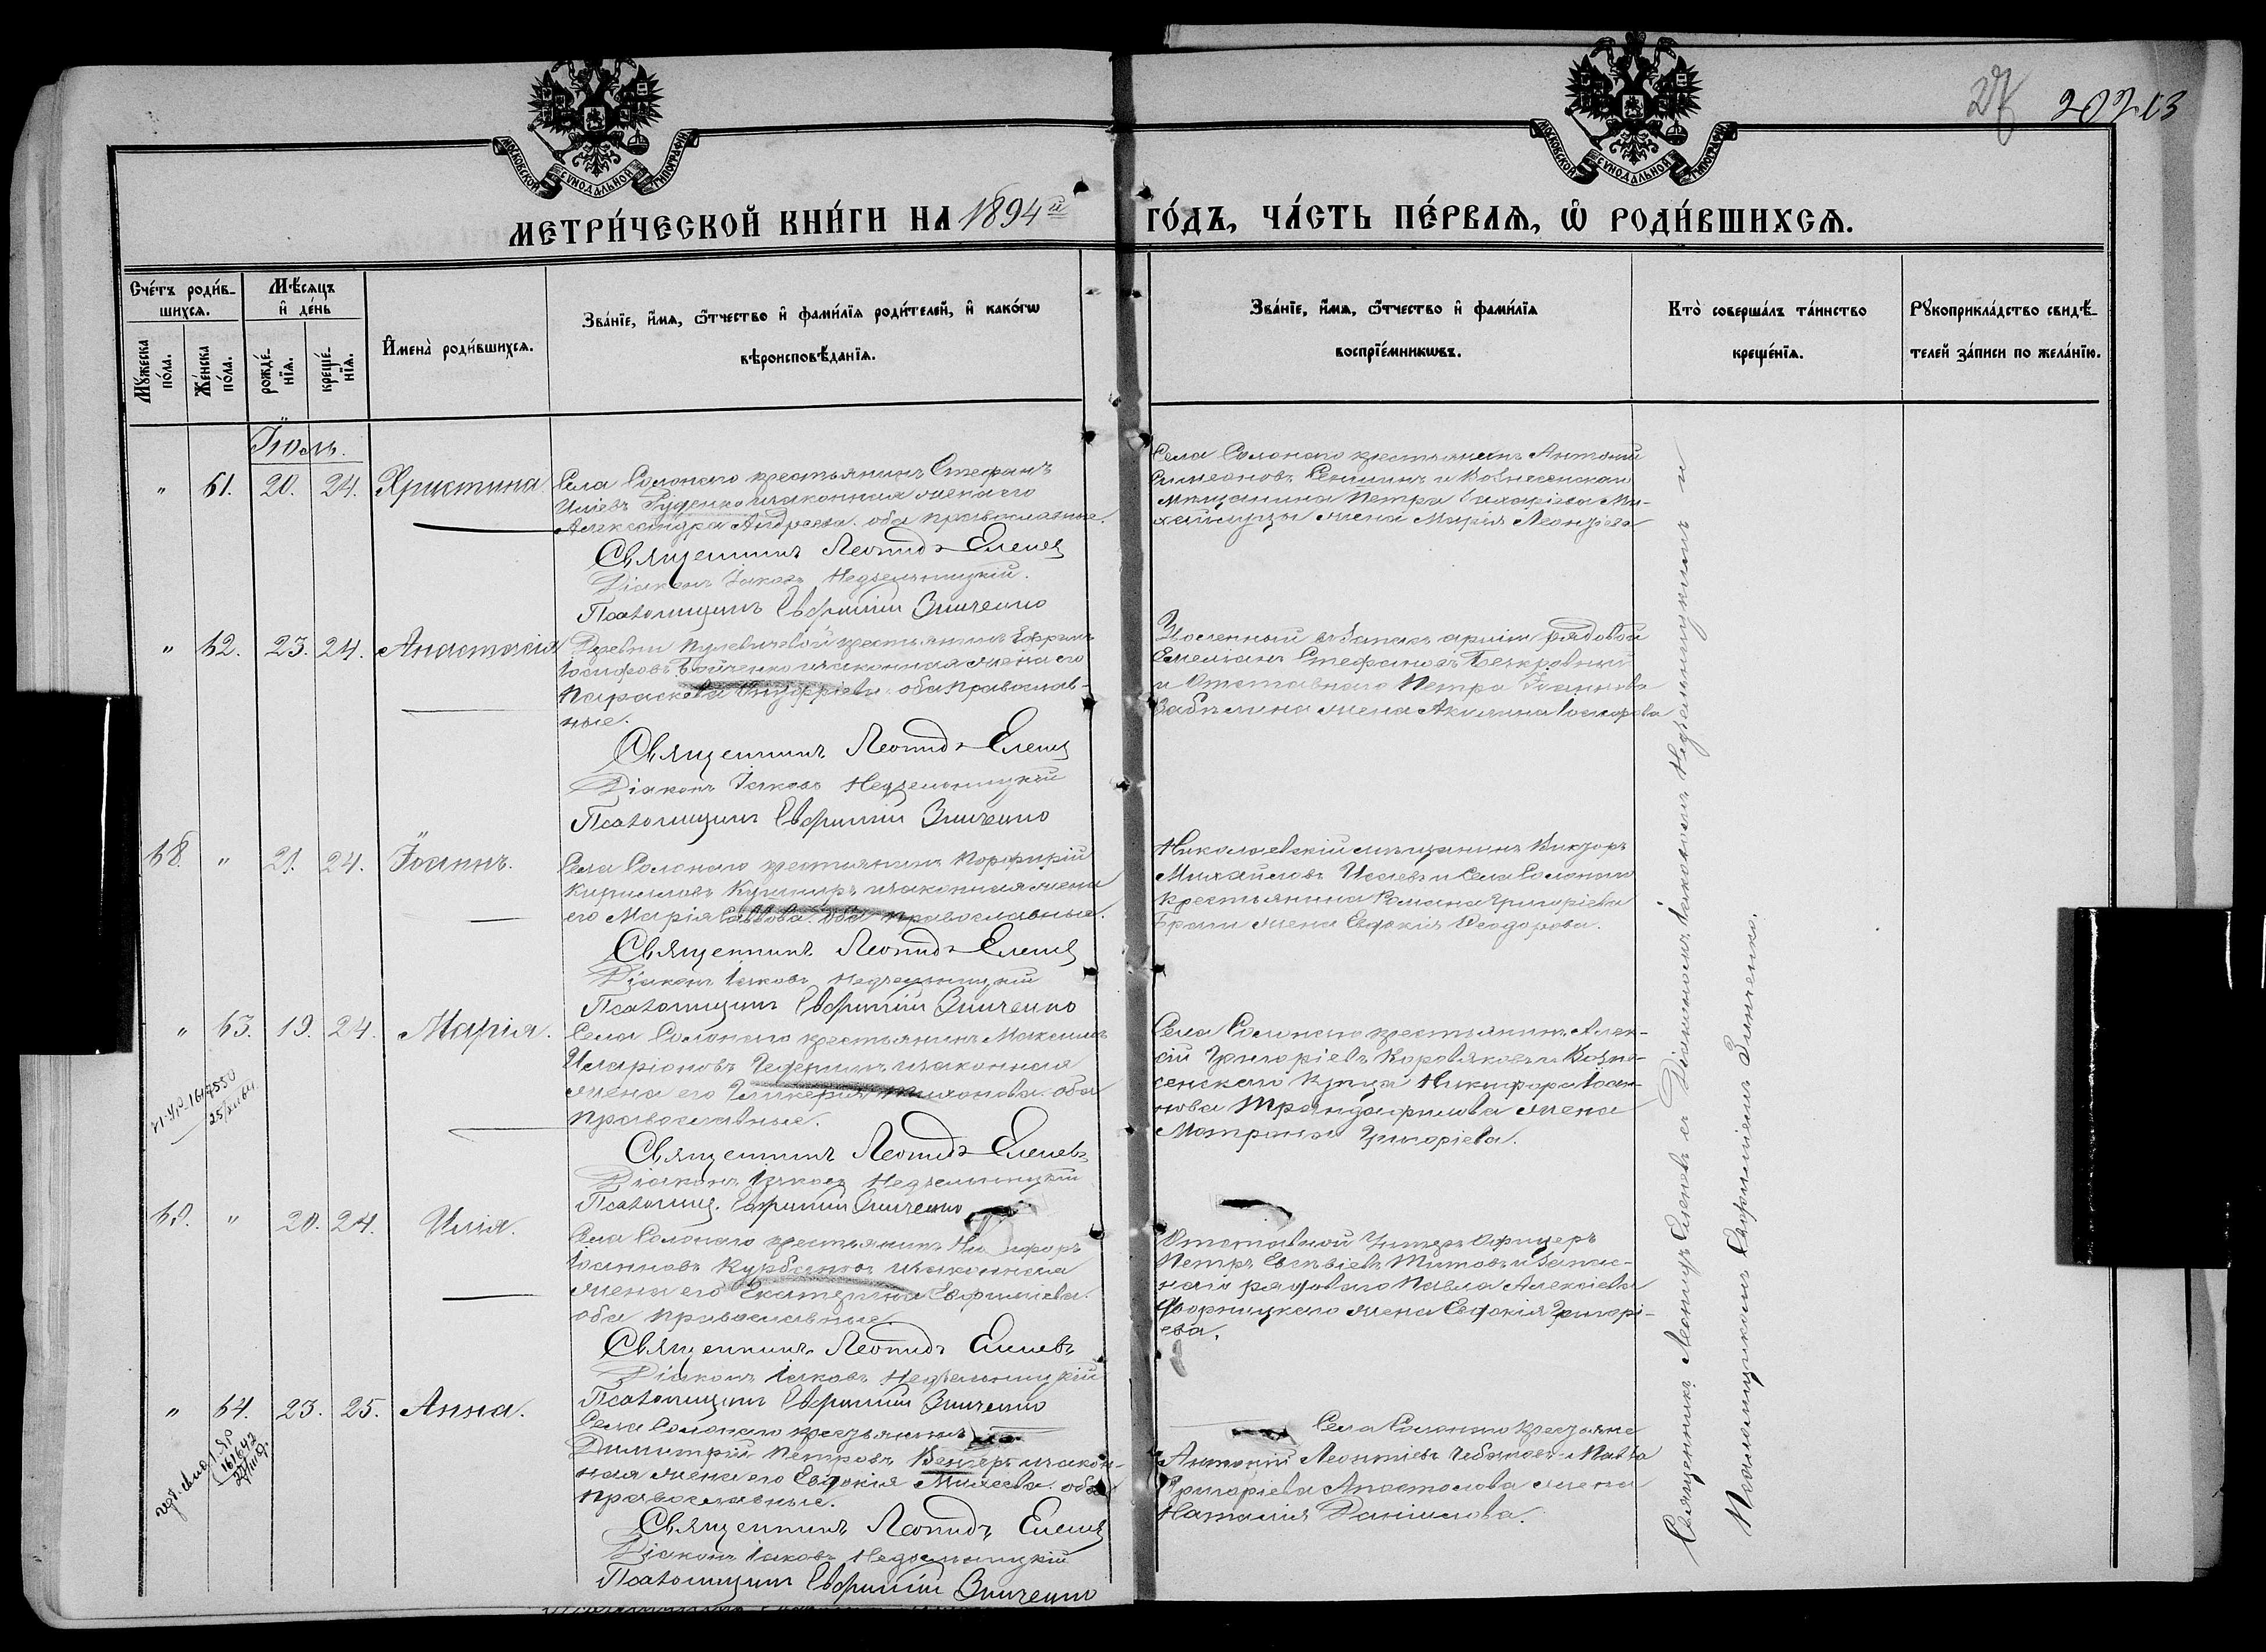 27 202 13
МОСКОВСКОЙ СУНОДАЛЬНОЙ ТИПОГРАФІИ
МОСКОВСКОЙ СУНОДАЛЬНОЙ ТИПОГРАФІИ
МЕТРИ́ЧЕСКОЙ КНИ́ГИ НА 1894й ГО́ДЪ, ЧА́СТЬ ПЕ́РВАѦ, Ѡ҆ РОДИ́ВШИХСѦ.
Сче́тъ роди́в-
шихся.
Мꙋжеска по́ла.
Же́нска по́ла.
Мѣ́сяцъ
и҆ де́нь
рожде́-
нїѧ.
креще́-
нїѧ.
И҆мена̀ роди́вшихсѧ.
Зва́нїе, и҆́мѧ, ѻ҆́тчество и҆ фами́лїѧ роди́телей, и҆ како́гѡ
вѣроисповѣ́данїѧ.
Зва́нїе, и҆́мѧ, ѻ҆́тчество и҆ фами́лїѧ
воспрїе́мникѡвъ.
Кто̀ соверша́лъ та́инство
креще́нїѧ.
Рꙋкоприкла́дство свидѣ́-
телей за́писи по жела́нїю.
Іюль.
" 61. 20. 24. Христина
Села Солонаго крестьянинъ Стефанъ
Иліевъ Руденко и законная жена его
Александра Андреева. оба православные.
Священникъ Леонидъ Еленев
Діаконъ Іаковъ Недзельницкій.
Псаломщикъ Евфимій Зинченко
Села Солонаго крестьянинъ Антоній
Симеоновъ и Вознесенскаго
мещанина Петра Захаріева Ми-
жена Марія Леонтіева
" 62. 23. 24. Анастасія
Деревни крестьянинъ Ефремъ
Іосифовъ и законная жена его
Параскева Онуфріева. оба православ-
ные.
Священникъ Леонидъ Еленев
Діаконъ Іаковъ Недзельницкій
Псаломщикъ Евфимій Зинченко
Уволенный въ запасъ арміи рядовой
Емеліанъ Стефановъ
и Отставнаго Петра Іоаннова
Забѣлина жена Акилина
68. " 21. 24. Іоаннъ.
Села Солонаго крестьянинъ Порфирій
Кирилловъ Кушниръ и законная жена
его Марія Саввова. оба православные.
Священникъ Леонидъ Еленев
Діаконъ Іаковъ Недзельницкій
Псаломщикъ Евфимій Зинченко
Николаевскій мѣщанинъ Викторъ
Михайловъ Исаевъ и Села Солонаго
крестьянина Романа Григоріева
жена Евдокія Ѳеодорова.
" 63. 19. 24. Марія.
Села Солонаго крестьянинъ Максимъ
Иларіоновъ и законная
жена его Гликерія Тихонова. оба
православные.
Священникъ Леонидъ Еленевъ
Діаконъ Іаковъ Недзельницкій
Псаломщ. Евфимій Зинченко
Села Солонаго крестьянинъ Алек-
сій Григоріевъ Коровяковъ и Возне-
сенскаго купца Никифора Іоан-
нова Трандафилова жена
Матрона Григоріева.
69. " 20. 24. Илія.
Села Солонаго крестьянинъ Никифоръ
Іоанновъ Курбановъ и законная
жена его Екатерина Евфиміева.
оба православные.
Священникъ Леонидъ Еленевъ
Діаконъ Іаковъ Недзельницкій
Псаломщикъ Евфимій Зинченко
Отставной Унтеръ Офицеръ
Петръ Евсѣвіевъ Титовъ и Запас-
наго рядоваго Павла Алексіева
Дворницкаго жена Евдокія Григорі-
ева.
" 64. 23. 25. Анна.
Села Солонаго крестьянинъ
Димитрій Петровъ Венгеръ и закон-
ная жена его Евдокія Михеева. оба
православные.
Священникъ Леонидъ Еленев
Діаконъ Іаковъ Недзельницкій
Псаломщикъ Евфимій Зинченко
Села Солонаго крестьяне
Антоній Леонтіевъ Чебановъ и Павла
Григоріева Апостолова жена
Наталія Даніилова.
Священникъ Леонидъ Еленевъ съ Діакономъ Іаковомъ Недзельницкимъ и
Псаломщикомъ Евфиміемъ Зинченко.